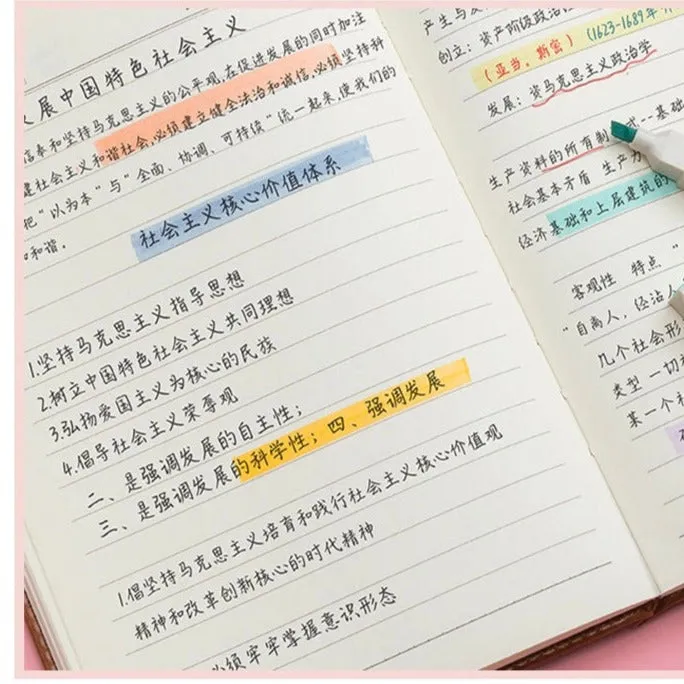 展中国特色社会主义
信泰和坚持马克思主义的公平观,在促进发展的同时加注
建社会主义和谐社会,必须建立健全法治和诚信,必须坚持科
把"以为本"与"全面、协调、可持续"统一起来,使我们的
和谐。
社会主义核心价值体系
1.坚持马克思主义指导思想
2.树立中国特色社会主义共同理想
3.弘扬爱国主义为核心的民族
4.倡导社会主义荣辱观
二、是强调发展的自主性;
三、是强调发展的科学性;四、强调发展
1.倡坚持马克思主义培育和践行社会主义核心价值观
精神和改革创新核心的时代精神
必须牢牢掌握意识形态
产生与发
创立:资产阶级政治
(亚当,斯密)(1623-1689年
发展:资马克思主义政治学
生产资料的所有制 式--基础
社会基本矛盾 生产力
经济基础和上层建筑的
客观性 特点"
"自离人,经沾人
几个社会形
类型 一切
某一个